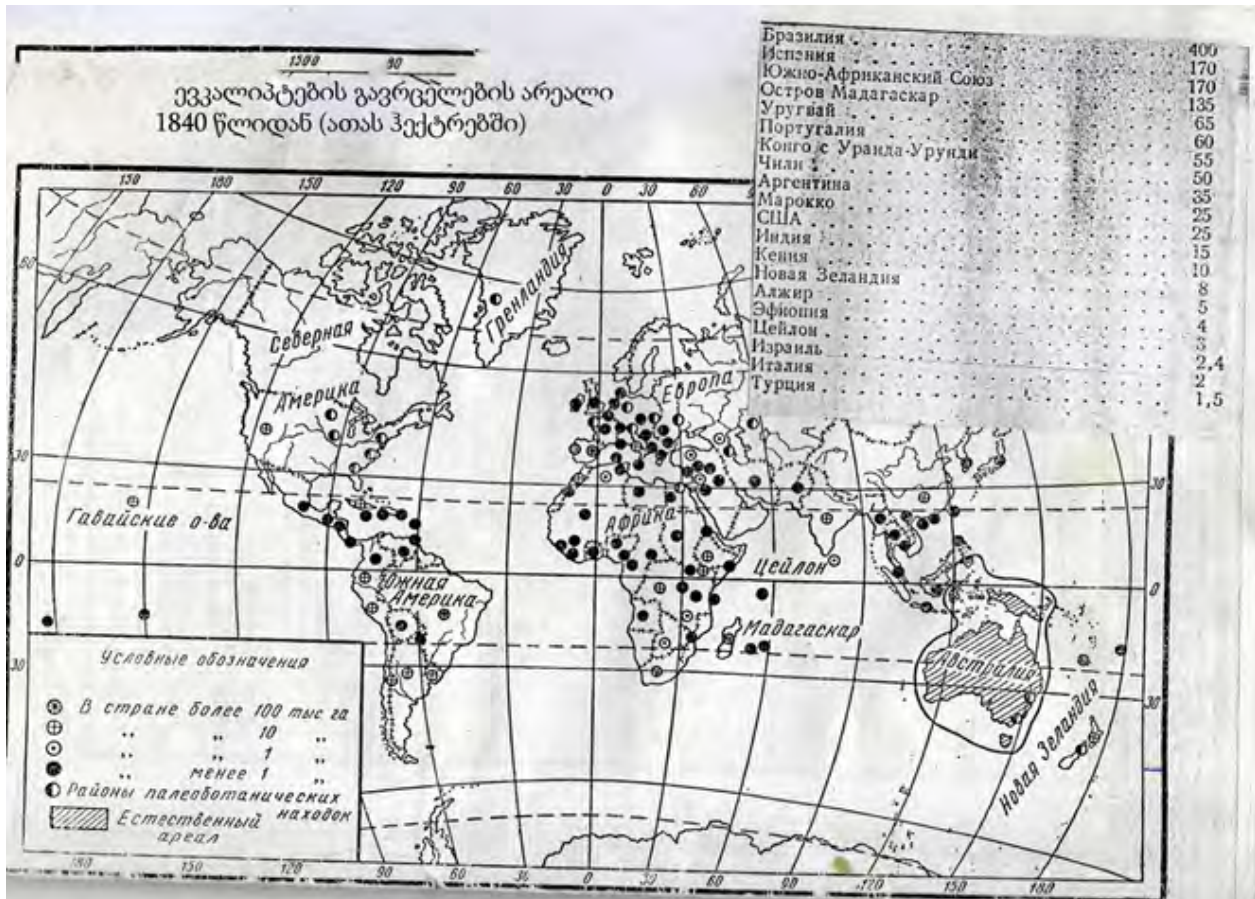 1500 90
ევკალიპტების გავრცელების არეალი
1840 წლიდან (ათას ჰექტრებში)
Бразилия 400
Испания 170
Южно-Африканский Союз 170
Остров Мадагаскар 135
Уругвай 65
Португалия 60
Конго с Уранда-Урунди 55
Чили 50
Аргентина 35
Марокко 25
США 25
Индия 15
Кения 10
Новая Зеландия 8
Алжир 5
Эфиопия 4
Цейлон 3
Израиль 2,4
Италия 2
Турция 1,5
150 120 90 60 30 0 30 60
Гренландия
Северная
Америка
Европа
30 30
Гавайские о-ва
Африка
Цейлон
0 0
Южная
Америка
Мадагаскар
Австралия
30 30
Новая Зеландия
Условные обозначения
В стране более 100 тыс га
,, ,, 10 ,,
,, ,, 1 ,,
,, менее 1 ,,
Районы палеоботанических
находок
Естественный
ареал
180 150 120 90 60 30 0 30 60 90 120 150 180